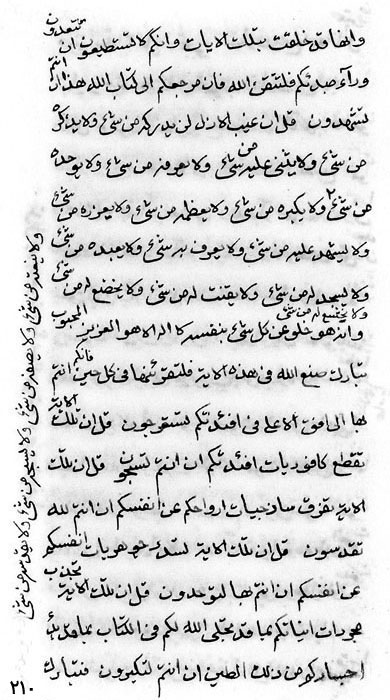 وانها قد خلقت بتلك الايات وانكم لا تستطيعون ان
تعدلون
وراء صبدئكم فلتتقن الله فان مرجعكم الى كتاب الله هذا ان انتم
لتشهدون قل ان غيب الازل لن يدركه من شئ ولا يذكره
من شئ ولا يثنى عليه من شئ ولا يعرفه من شئ ولا يوحده
من شئ ولا يكبره من شئ ولا يعظمه من شئ ولا يعززه من شئ
ولا يشهد عليه من شئ ولا يعرف به شئ ولا يعبده من شئ
ولا يسجد له من شئ ولا يقنت له من شئ ولا يخضع له من شئ
ولا يخشع له من شئ
وانه هو خلو عن كل شئ بنفسه لا اله الا هو العزيز المحبوب
تبارك صنع الله فى هذه الاية فلتقرئنها فى كل حين فانكم انتم
بها الى افق الاعلى فى افئدتكم لتستعرجون قل ان تلك الاية
تقطع كافوريات افئدتكم ان انتم تسبحون قل ان تلك
الاية تفرق ساذجيات ارواحكم عن انفسكم ان انتم لله
تقدسون قل ان تلك الاية لتستدعى جوهريات انفسكم
عن انفسكم ان انتم بها لتوحدون قل ان تلك الاية تجذب
مجردات انياتكم بما قد تجلى الله لكم فى الكتاب بما قد
اجسادكم من ذلك الطين ان انتم لتكبرون فتبارك
ولا ينعته من شئ ولا يصفه من شئ ولا يسبحه من شئ ولا يقدسه من شئ
٢١٠